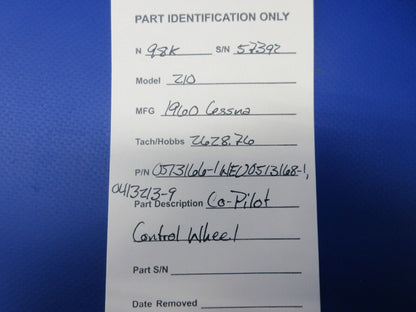 PART IDENTIFICATION ONLY
N 98K S/N 57392
Model 210
MFG 1960 Cessna
Tach/Hobbs 2628.76
P/N 0513166-1 NEU 0513168-1,
0413213-9
Part Description Co-Pilot
Control Wheel
Part S/N
Date Removed